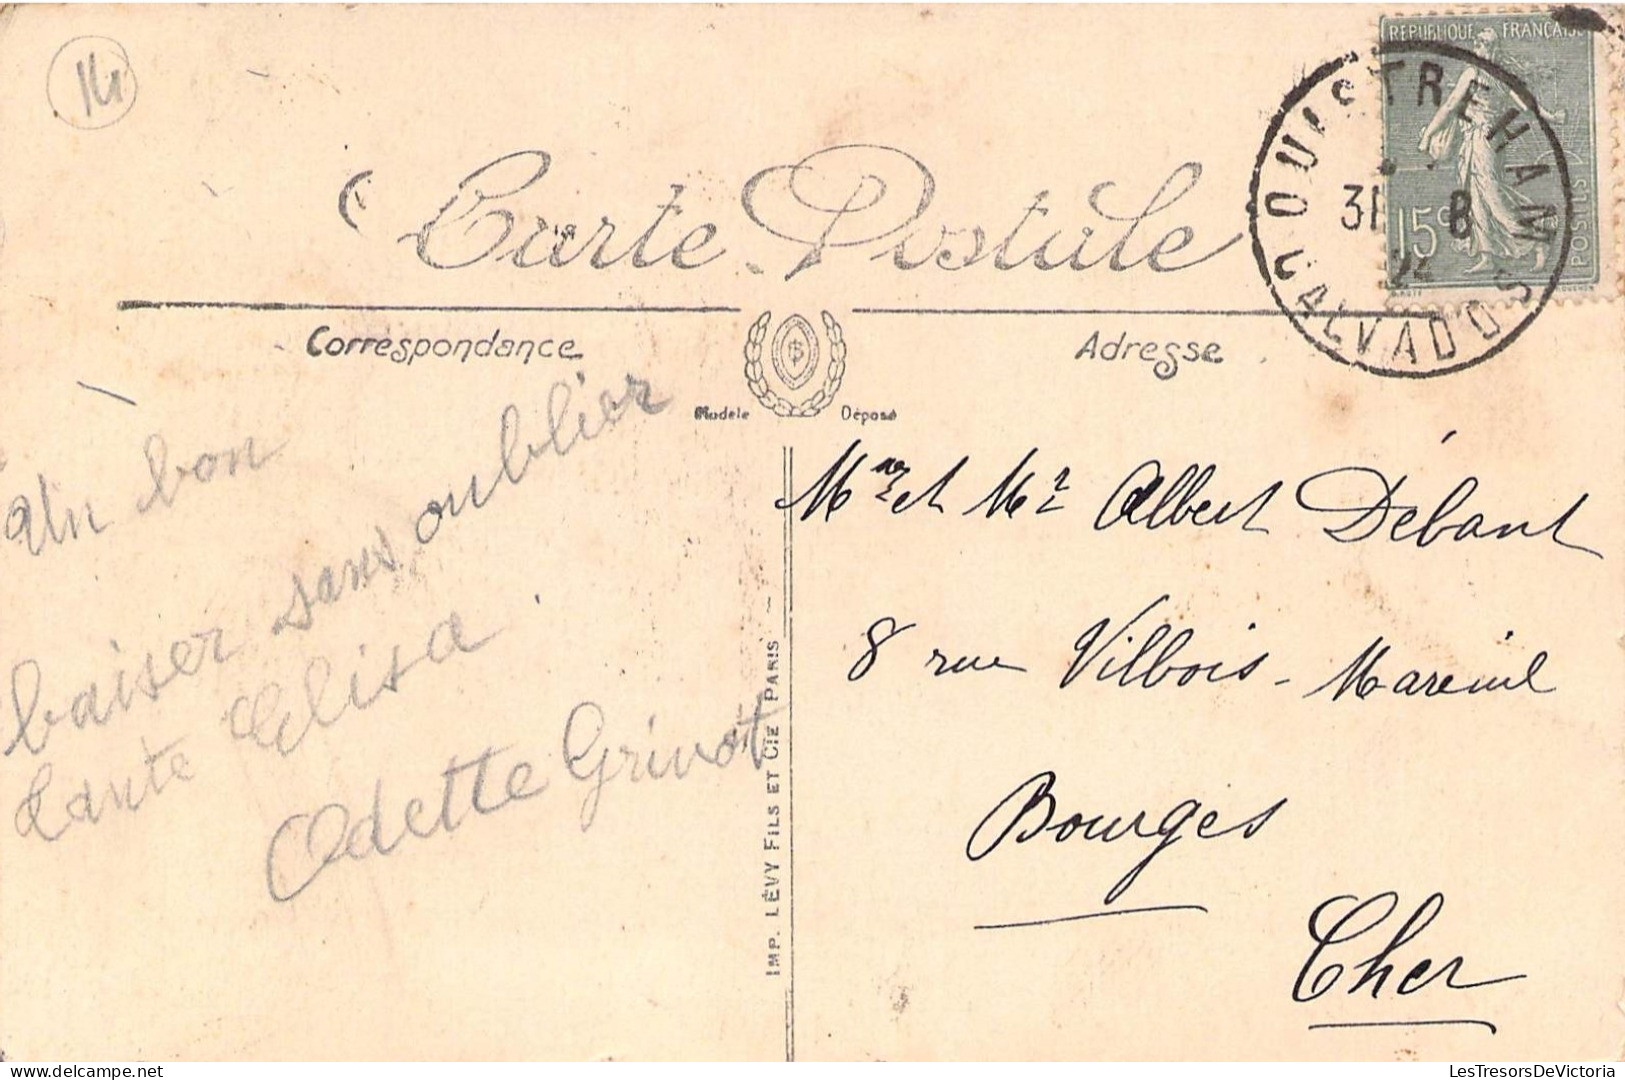 14
RÉPUBLIQUE FRANÇAISE
15c
POSTES
OUISTREHAM
31 8
24
CALVADOS
Carte Postale
Correspondance
Adresse
Modèle Déposé
Un bon
baiser sans oublier
tante Elisa
Odette Grivot
IMP. LÉVY FILS ET CIE PARIS
Mme et Mr Albert Débant
8 rue Vilbois-Mareuil
Bourges
Cher
LesTresorsDeVictoria